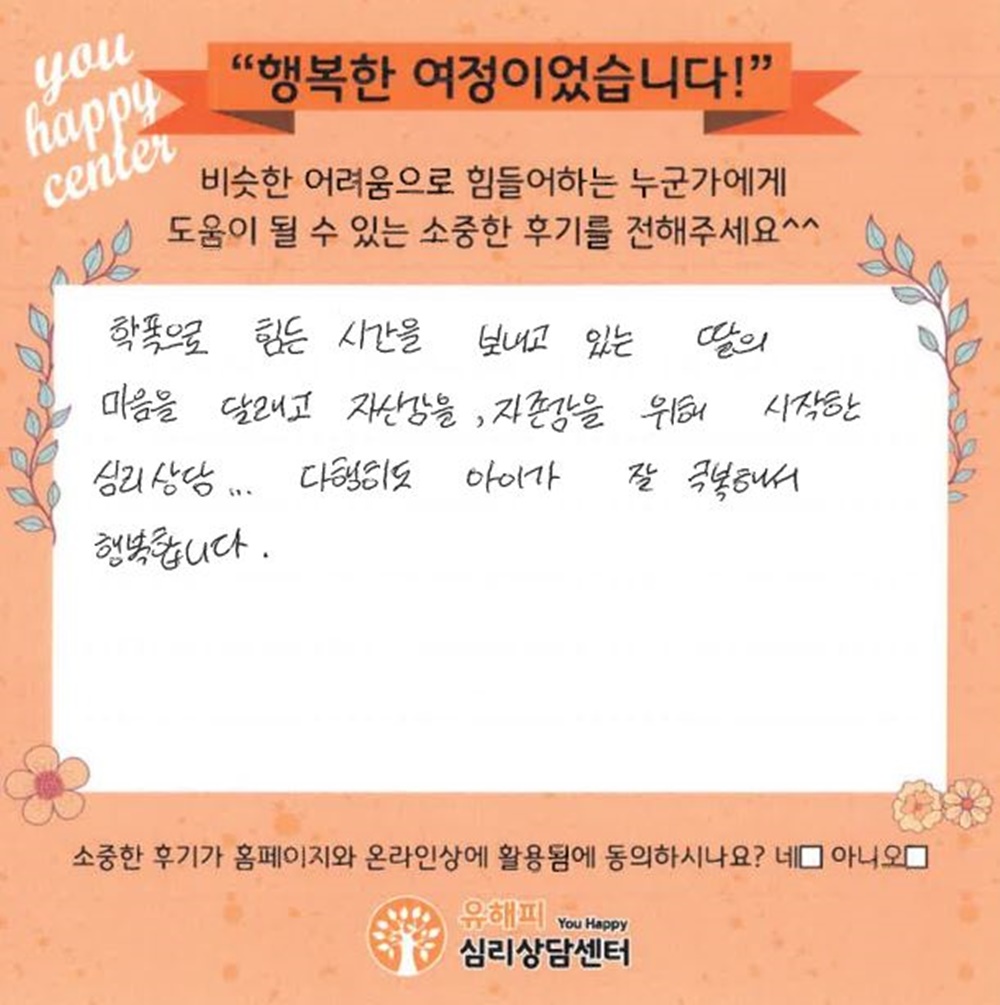 you
happy
center
“행복한 여정이었습니다!”
비슷한 어려움으로 힘들어하는 누군가에게
도움이 될 수 있는 소중한 후기를 전해주세요^^
학폭으로 힘든 시간을 보내고 있는 딸의
마음을 달래고 자신감을, 자존감을 위해 시작한
심리상담... 다행히도 아이가 잘 극복해서
행복합니다.
소중한 후기가 홈페이지와 온라인상에 활용됨에 동의하시나요? 네□ 아니오□
유해피 You Happy
심리상담센터